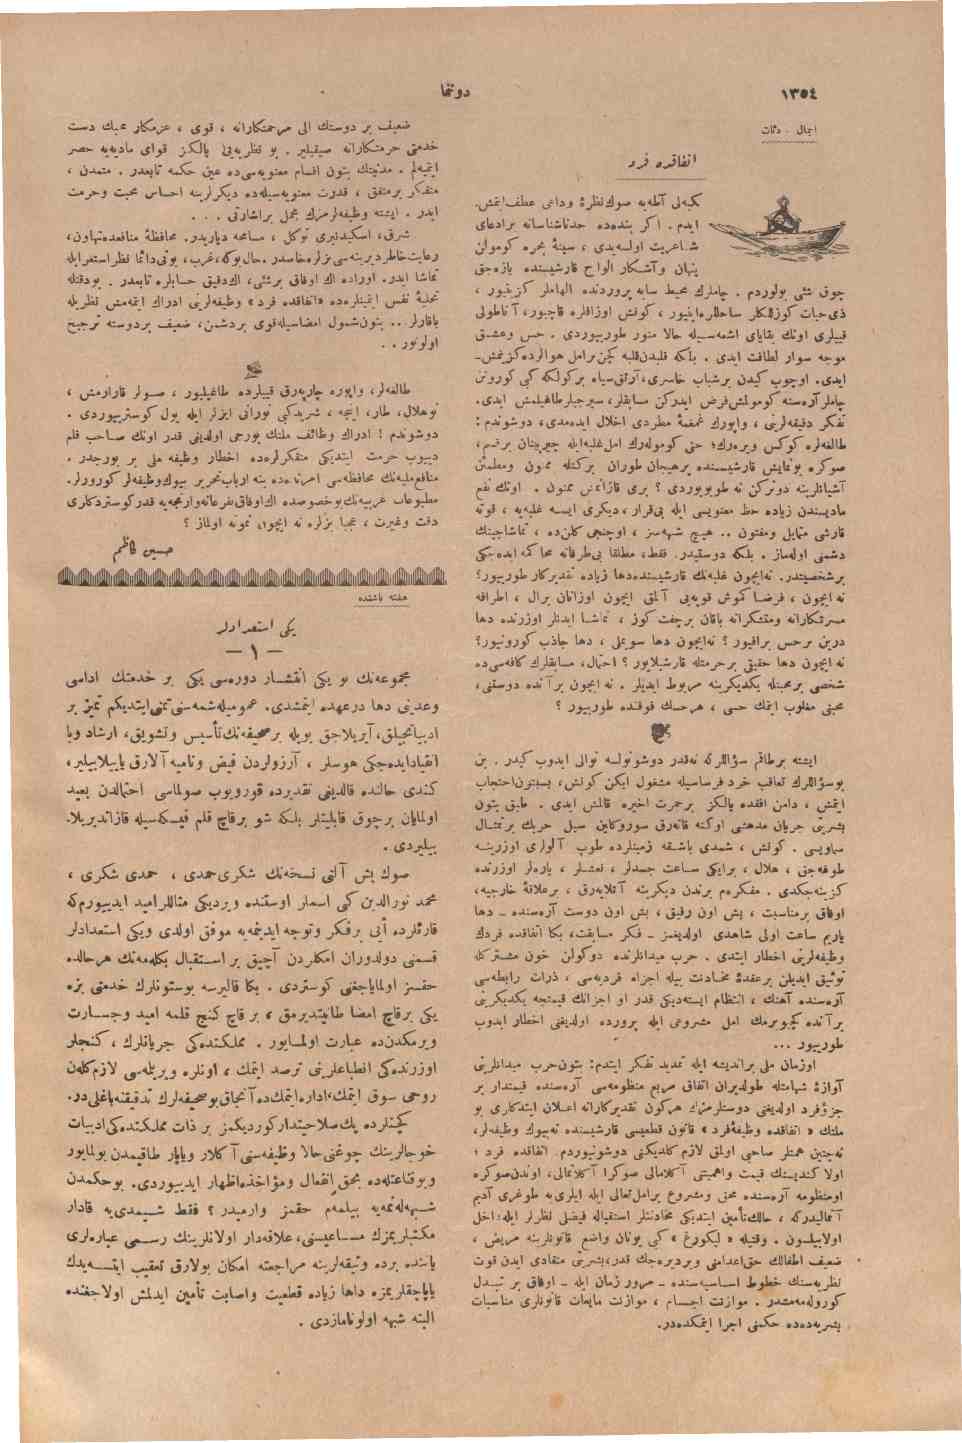 ١٣٥٤
دوننما
اجمال . دئات
اتفاقده فرد
كبه‌لى آطه‌يه صوك نظرۀ وداعى عطف ايتمش.
ايدم . اكر بنده‌ده حدناشناسانه برادعاى
شاعريت اولسه‌يدى ، سينۀ بحره كومولن
پنهان وآشكار الواح قارشيسنده يازه‌جق
چوق شئى بولوردم . چاملرك محيط سايه پرورندنده الهاملر كزينيور ،
ذى‌حيات كوزللكلر ساحللره اينيور ، كونش اوزاقلره قاچيور، آناطولى
قييلرى اونك بقاياى اشعه‌سيله حالا منور طورييوردى . حس وعشق
موجه سوار لطافت ايدى . بلكه قلبدن قلبه كچن برامل هوالرده كزنمش-
ايدى. اوچوب كيدن برشباب خاسرى، آرتق سياه بر كولكه كبى كورونن
چاملر آره‌سنه كومولمش فرض ايدركن مسابقلر، سيرجيلر طاغيلمش ايدى.
تفكر دقيقه‌لرينى ، واپورك غمغمۀ مطردى اخلال ايده‌مدى، دوشوندم :
طالغه‌لره كوكس ويره‌رك؛ حتى كومولەرك امل غلبه ايله چيرپينان برقسم،
صوكره بونمايش قارشيسنده پرهيجان طوران بركتله ممنون ومطمئن
آشيانلرينه دونركن نه طويويوردى ؟ برى قازانمش ممنون . اونك نفع
ماديسندن زياده حظ معنويسى ايله بى‌قرار ، ديكرى ايسه غلبه‌يه ، قوته
قارشى متمايل ومفتون .. هيچ شبهه‌سز ، اوچنجى كلن‌ده ، تماشاجينك
دشمنى اوله‌ماز . بلكه دوستيدر. فقط، مطلقا بى‌طرفانه محاكمه ايده‌جكى
برشخصيتدر. نه‌ايچون غلبه‌نك قارشيسنده‌دها زياده تقديركار طورييور؟
نه ايچون ، فرضا كموش قوپه‌يى آلمق ايچون اوزانان برال ، اطرافه
مسرتكارانه ومتشكرانه باقان برچفت كوز ، تماشا ايدنلر اوزرنده دها
درين برحس براقيور ؟ نه‌ايچون دها سويملى ، دها جاذب كورونيور؟
نه ايچون دها حقيقى برحرمتله قارشيلانيور ؟ احتمال، مسابقلرك كافه‌سى‌ده
شخصى برمحبتله يكديكرينه مربوط ايديلر . نه ايچون برآنده دوستنى،
محبنى مغلوب ايتمك حسى ، هرحسك فوقنده طورييور ؟
ايشته برطاقم سؤاللركه نه‌قدر دوشونولسه توالى ايدوب كيدر . بن
بوسؤاللرك تعاقب خرد فرساسيله مشغول ايكن كونش، بسبتون احتجاب
ايتمش ، دامن افقده يالكز برحمرت اخيره قالمش ايدى . طبق بتون
بشريتى جريان مدهشى اوكنه قاته‌رق سوروكلاين سيل حربك برتمثال
سماويسى . كونش ، شمدى باشقه زمينلرده طوپ آلولرى اوزرينه
طوغه‌جق ، هلال ، برايكى ساعت جسدلر ، نعشلر ، ياره‌لر اوزرنده
كزينه‌جكدى . مفكره‌م برندن ديكرينه آتلايه‌رق ، برعلاقۀ خارجيه،
اوفاق برمناسبت ، بش اون رفيق ، بش اون دوست آره‌سنده ـ دها
ياريم ساعت اولى شاهدى اولديغمز ـ فكر مسابقت، بكا اتفاقده فردك
وظيفه‌لرينى اخطار ايتدى . حرب ميدانلرنده دوكولن خون مشتركله
توثيق ايديلن برعقدۀ مخادنت بيله اجزاء فرديه‌سى ، ذرات رابطه‌سى
آره‌سنده آهنك ، انتظام ايسته‌ديكى قدر او اجزانك قيمتجه يكديكرينى
برآنده كچيويرمك امل مشروعى ايله پرورده اولديغنى اخطار ايدوب
طورييور ...
اوزمان ملى برانديشه ايله تمديد تفكر ايتدم: بتون حرب ميدانلرينى
آوازۀ شهامتله طولديران اتفاق مربع منظومه‌سى آره‌سنده قيمتدار بر
جزؤفرد اولديغنى دوستلرمزك هركون تقديركارانه اعلان ايتدكلرى بو
ملتك « اتفاقده وظيفۀفرد » قانون قطعيسى قارشيسنده نه‌بيوك وظيفه‌لر،
نه‌چتين همتلر صاحبى اولمق لازم كلديكنى دوشونيوردم. اتفاقده فرد ؛
اولا كنديسنك قيمت واهميتنى آكلامالى صوكرا آكلاتمالى، اوندن صوكره
اومنظومه آره‌سنده محق ومشروع برامل تعالى ايله ايلرى‌يه طوغرى آديم
آتماليدركه ، حالك تأمين ايتديكى مخادنتلر استقباله فيضلى نظرلر ايله داخل
اولابيلسون . وقتيله « ليكورغ » كبى يونان واضع قانونلرينه مريض ،
ضعيف اطفالك حق اعدامنى ويرديره‌جك قدر، بشريتى متقادى ايدن قوت
نظريه‌سنك خطوط اساسيه‌سنده ـ مرور زمان ايله ـ اوفاق بر تبدل
كورولمه‌مشدر . موازنت اجسام ، موازنت مايعات قانونلرى مناسبات
بشريه‌ده‌ده حكمنى اجرا ايتمكده‌در.
ضعيف بر دوستك الى مرحمتكارانه ، قوى ، عزمكار محبك دست
خدمتى حرمتكارانه صيقيلير . بو نظريه‌يى يالكز قواى ماديه‌يه حصر
ايتميه‌لم . مدنيتك بتون اقسام معنويه‌سى‌ده عين حكمه تابعدر. متمدن ،
متفكر برمتفق ، قدرت معنويه‌سيله‌ده ديكرلرينه احساس محبت وحرمت
ايدر . ايشته وظيفه‌لرمزك مجمل براشارتى . . .
شرق، اسكيدنبرى توكل ، مسامحه دياريدر. محافظۀ منافعده‌تهاون،
رعايت خاطر ديرينه‌سى بزلره خاصدر. حال بوكه، غرب ، بونى دائما نظر استغرابله
تماشا ايدر. اوراده اك اوفاق برشئى، اك دقيق حسابلره تابعدر . بودقتله
تحليۀ نفس ايتمينلرده‌ده «اتفاقده فرد» وظيفه‌لرينى ادراك ايتمه‌مش نظريله
باقارلر .. بتون شمول امضاسيله قوى بردشمن، ضعيف بردوسته ترجيح
اولونور . .
طالغه‌لر، واپوره چارپه‌رق قييلرده طاغيلييور ، صولر قارارمش ،
نوهلال، طار، اينجه ، شريد كبى نورانى ايزلر ايله يول كوسترييوردى .
دوشوندم ! ادراك وظائف ملتك بورجى اولديغى قدر اونك صاحب قلم
دييوب حرمت ايتديكى متفكرلره‌ده اخطار وظيفه ملى بر بورجدر .
منافع مليه‌نك محافظه‌سى امرنده‌ده ينه ارباب تحرير بيوك وظيفه‌لر كورورلر.
مطبوعات غربيه‌نك بوخصوصده اك اوفاق تفرعاته‌وارنجيه‌يه قدر كوستردكلرى
دقت وغيرت ، عجبا بزلره نه ايچون نمونه اولماز ؟
حسين كاظم
هفته باشنده
يكى استعدادلر
— ١ —
مجموعه‌نك بو يكى انتشار دوره‌سى يكى بر خدمتك اداسى
وعدينى دها درعهده ايتمشدى. عموميله‌شمه‌سنى تمنى ايتديكم تميز بر
ادبياتجيلق، آيريلاجق بويله برصحيفه‌نك تأسيس وتشويق، ارشاد ويا
انقيادايده‌جكى هوسلر ، آرزولردن فيض وناميه آلارق ياييلابيلير،
كندى حالنده قالديغى تقديرده قورويوب صولماسى احتمالدن بعيد
اولمايان برچوق قابليتلر بلكه شو برقاچ قلم فيسكه‌سيله قازانديريلا.
بيليردى .
صوك بش آلتى نسخه‌نك شكرى حمدى ، حمدى شكرى ،
محمد نورالدين كبى اسملر اوستنده ويرديكى مثاللر اميد ايدييورم كه
قارئلرده آنى برفكر وتوجه ايديشمه‌يه موفق اولدى ويكى استعدادلر
قسمنى دولدوران امكلردن آچيق بر استقبال بكله‌مه‌نك هرحالده
حقسز اولماياجغنى كوستردى . بكا قاليرسه بوستونلرك خدمتى بزه
يكى برقاچ امضا طانيتديرمق ، بر قاچ كنج قلمه اميد وجسارت
ويرمكدن‌ده عبارت اولمايور . مملكتده‌كى جريانلرك ، كنجلر
اوزرنده‌كى انطباعلرينى ترصد ايتمك ، اونلره ويريله‌سى لازم كلن
روحى سوق ايتمك، اداره ايتمك‌ده آنجاق بوصحيفه‌لرك تدقيقنه باغلى‌در.
كچنلرده پك صلاحيتدار كورديكمز بر ذات مملكتده‌كى ادبيات
خواجالرينك چوغنى حالا وظيفه‌سنى آكلار وياپار طاقيمدن بولمايور
وبوقناعتله‌ده بحق انفعال ومؤاخذه اظهار ايدييوردى. بوحكمدن
شبهه‌لنمه‌يه بيلمه‌م حقمز وارميدر ؟ فقط شيمدى‌يه قادار
مكتبلريمزك مساعيسنى، علاقه‌دار اولانلرينك رسمى عباره‌لرى
ياننده برده وثيقه‌لرينه مراجعته امكان بولارق تعقيب ايتسه‌يدك
ياپاجقلريمزه داها زياده قطعيت واصابت تأمين ايدلمش اولاجغنده
البته شبهه اولونامازدى .